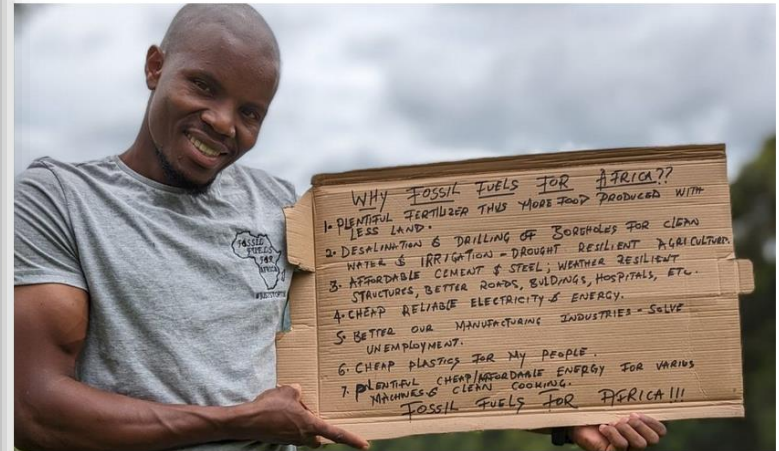 FOSSIL
FUELS
FOR
AFRICA
WHY FOSSIL FUELS FOR AFRICA??
1. PLENTIFUL FERTILIZER THUS MORE FOOD PRODUCED WITH
LESS LAND.
2. DESALINATION & DRILLING OF BOREHOLES FOR CLEAN
WATER & IRRIGATION - DROUGHT RESILIENT AGRICULTURE
3. AFFORDABLE CEMENT & STEEL; WEATHER RESILIENT
STRUCTURES, BETTER ROADS, BULDINGS, HOSPITALS, ETC.
4. CHEAP RELIABLE ELECTRICITY & ENERGY.
5. BETTER OUR MANUFACTURING INDUSTRIES - SOLVE
UNEMPLOYMENT.
6. CHEAP PLASTICS FOR MY PEOPLE.
7. PLENTIFUL CHEAP/AFFORDABLE ENERGY FOR VARIUS
MACHINES & CLEAN COOKING.
FOSSIL FUELS FOR AFRICA!!!